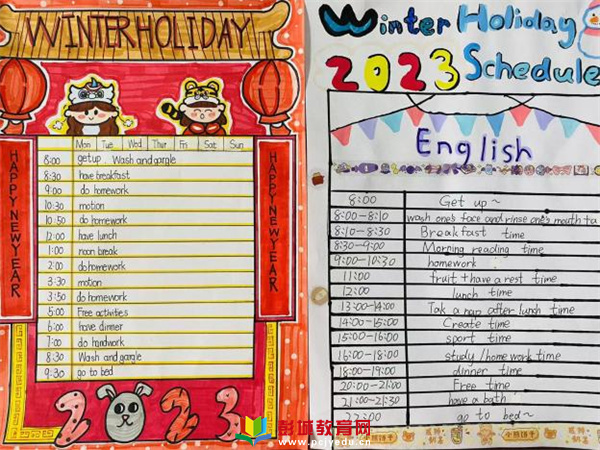 WINTER HOLIDAY
Mon Tue Wed Thur Fri Sat Sun
8:00 get up . Wash and gargle
8:30 have breakfast
9:00 do homework
10:30 motion
10:50 do homework
12:00 have lunch
1:00 noon break
2:00 do homework
3:30 motion
3:50 do homework
5:00 Free activities
6:00 have dinner
7:00 do homework
8:30 Wash and gargle
9:30 go to bed
HAPPY NEW YEAR
HAPPY NEW YEAR
2023
Winter Holiday
2023 Schedule
English
8:00 Get up~
8:00-8:10 wash one's face and rinse one's mouth ta
8:10-8:30 Breakfast time
8:30-9:00 Morning reading time
9:00-10:30 homework
11:00 fruit + have a rest time
12:00 lunch time
13:00-14:00 Tak a nap after lunch time
14:00-15:00 Create time
15:00-16:00 sport time
16:00-18:00 study/homework time
18:00-19:00 dinner time
20:00-21:00 Free time
21:00-21:30 have a bath
22:00 go to bed~
彭城教育网
www.pcjyedu.cn